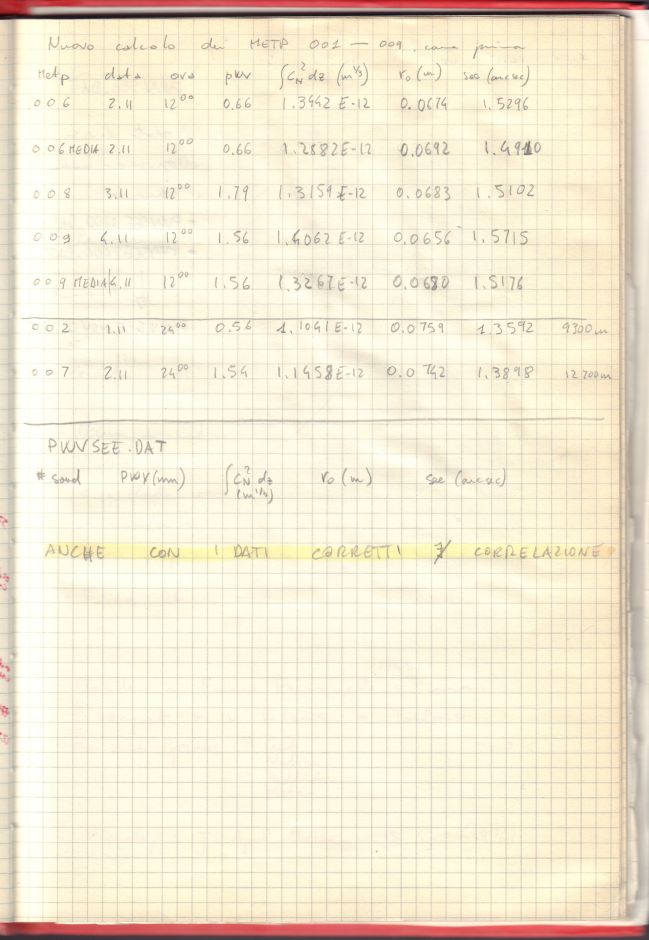 Nuovo calcolo dei METP 001 — 009, come prima
Metp data ora pwv ∫C_N² dz (m^1/3) r₀ (m) see (arcsec)
006 2.11 12⁰⁰ 0.66 1.3442 E-12 0.0674 1.5296
006 MEDIA 2.11 12⁰⁰ 0.66 1.2882E-12 0.0692 1.4910
008 3.11 12⁰⁰ 1.79 1.3159E-12 0.0683 1.5102
009 4.11 12⁰⁰ 1.56 1.4062 E-12 0.0656 1.5715
009 MEDIA 4.11 12⁰⁰ 1.56 1.3267E-12 0.0680 1.5176
002 1.11 24⁰⁰ 0.56 1.1041E-12 0.0759 1.3592 9300m
007 2.11 24⁰⁰ 1.54 1.1458E-12 0.0742 1.3898 12700m
PWVSEE.DAT
# sond PWV (mm) ∫C_N² dz (m^1/3) r₀ (m) see (arcsec)
ANCHE CON I DATI CORRETTI ∄ CORRELAZIONE